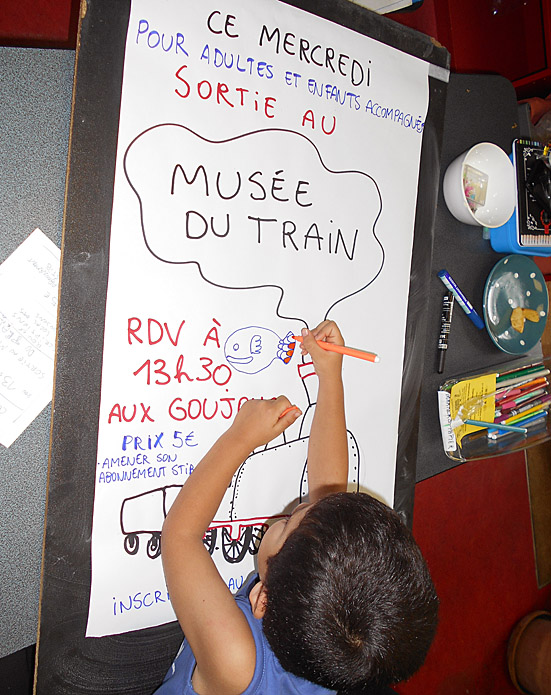 CE MERCREDI
POUR ADULTES ET ENFANTS ACCOMPAGNÉS
SORTIE AU
MUSÉE
DU TRAIN
RDV À
13h30
AUX
PRIX 5€
• AMENER SON
ABONNEMENT
AU